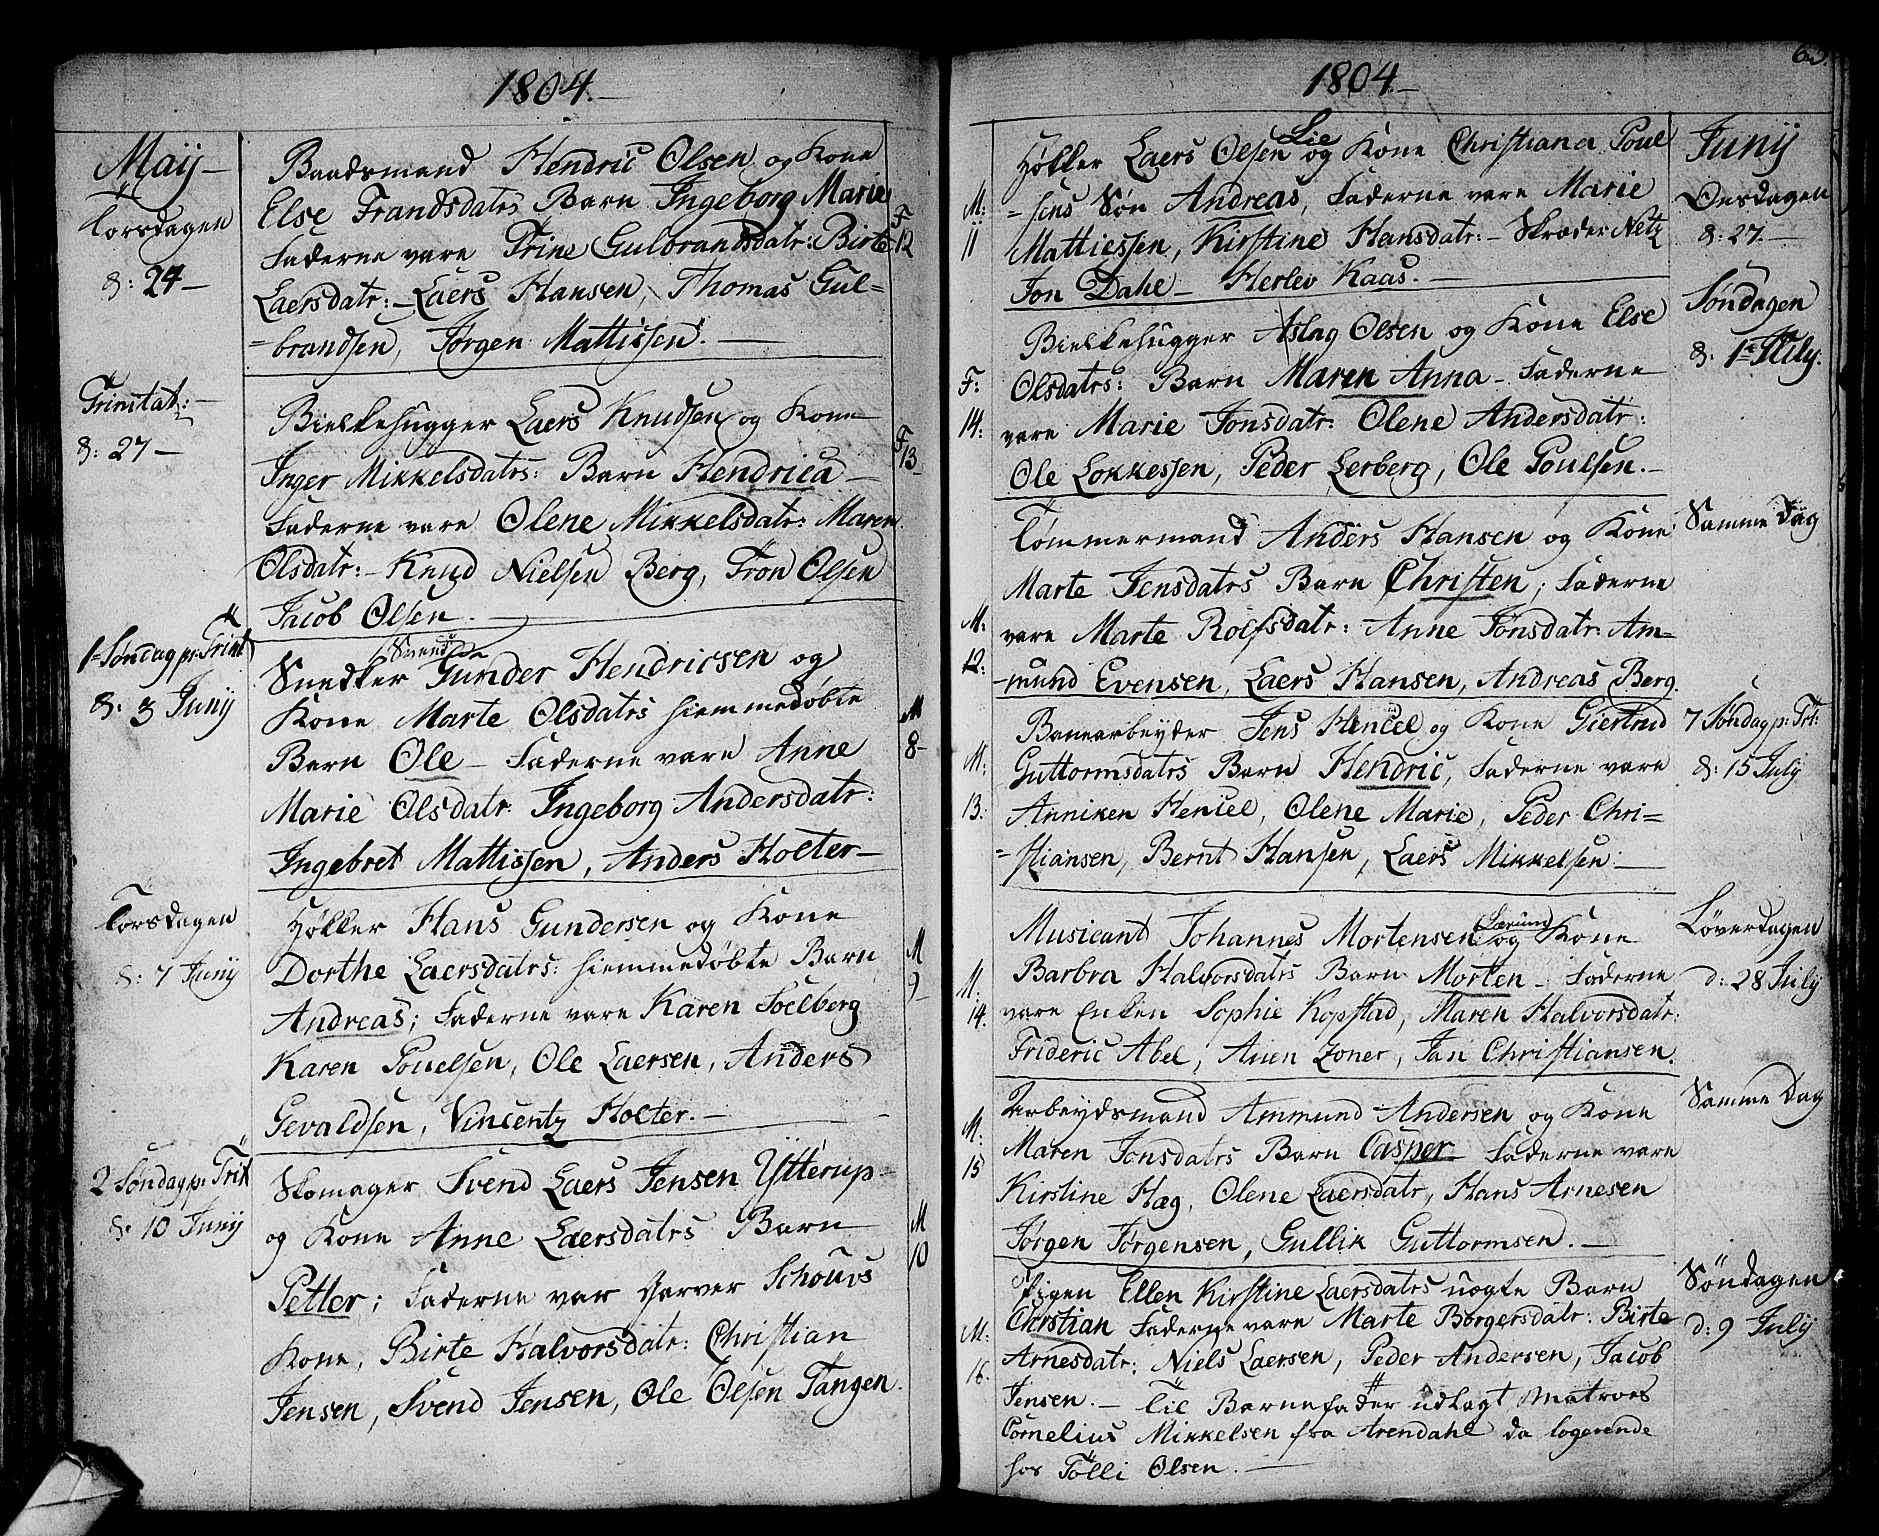 1804.
Maÿ
Torsdagen
d: 24
Baadsmand Hendric Olsen og Kone
Else Frandsdatrs Barn Ingeborg Marie
Faderne vare Trine Gulbrandsdatr: Birte
Laersdatr: Laers Hansen, Thomas Gul=
=brandsen, Jørgen Mattissen.
F
12
Trinitat:
d: 27
Bielkehugger Laers Knudsen og Kone
Inger Mikkelsdatrs: Barn Hendrica
Faderne vare Olene Mikkelsdatr: Maren
Olsdatr: Knud Nielsen Berg, Tron Olsen
Jacob Olsen.
F
13
1= Søndag p: Trint
d: 3 Junÿ
Snedker Gunder Hendricsen og
Kone Marte Olsdatrs hiemmedøbte
Barn Ole Faderne vare Anne
Marie Olsdatr Ingeborg Andersdatr:
Ingebret Mattissen, Anders Holter
M
8
Torsdagen
d: 7 Junÿ
Høkker Hans Gundersen og Kone
Dorthe Laersdatrs: hiemmedøbte Barn
Andreas; Faderne vare Karen Solberg
Karen Pouelsen, Ole Laersen, Anders
Gevaldsen, Vincentz Holter.
M
9
2 Søndag p: Trit
d: 10 Junÿ
Skomager Svend Laers Jensen Ytterup
og Kone Anne Laersdatrs Barn
Petter; Faderne var Garver Schouvs
Kone, Birte Halvorsdatr: Christian
Jensen, Svend Jensen, Ole Olsen Tangen.
M
10
63.
1804.
M:
11
Høkker Laers Olsen Lie og Kone Christiana Poul
=sens Søn Andreas, Faderne vare Marie
Mattiessen, Kirstine Hansdatr: Skræder Netz
Jon Dahl Herlev Kaas.
Junÿ
Onsdagen
d: 27.
F:
14:
Bielkehugger Aslag Olsen og Kone Else
Olsdatrs: Barn Maren Anna Faderne
vare Marie Jonsdatr: Olene Andersdatr:
Ole Lokkessen, Peder Lerberg, Ole Poulsen.
Søndagen
d: 1= July:
M:
12:
Tømmermand Anders Hansen og Kone
Marte Jensdatrs Barn Christen; Faderne
vare Marte Rolfsdatr: Anne Jonsdatr: Am=
=mund Evensen, Laers Hansen, Andreas Berg.
Samme Dag
M:
13:
Banearbeyder Jens Hencel og Kone Giertrud
Guttormsdatrs Barn Hendric, Faderne vare
Anniken Hencel, Olene Marie, Peder Chri=
=stiansen, Bernt Hansen, Laers Mikkelsen.
7 Søndag p: Trt:
d: 15 July
M:
14.
Musicant Johannes Mortensen og Kone
Barbra Halvorsdatrs Barn Morten Faderne
vare Enken Sophie Kopstad, Maren Halvorsdatr:
Frideric Abel, Auen Zoner, Jan Christiansen.
Løverdagen
d: 28 July
M:
15
Arbeydsmand Ammund Andersen og Kone
Maren Jonsdatrs Barn Casper Faderne vare
Kirstine Hæg, Olene Laersdatr, Hans Arnesen
Jørgen Jørgensen, Gullik Guttormsen.
Samme Dag
M:
16.
Pigen Ellen Kirstine Laersdatrs uægte Barn
Christian Faderne vare Marte Borgersdatr: Birte
Arnesdatr: Niels Laersen, Peder Andersen, Jacob
Jensen. Til Barnefader udlagt Matros
Cornelius Mikkelsen fra Arendahl da logerende
hos Tolli Olsen.
Søndagen
d: 9 July